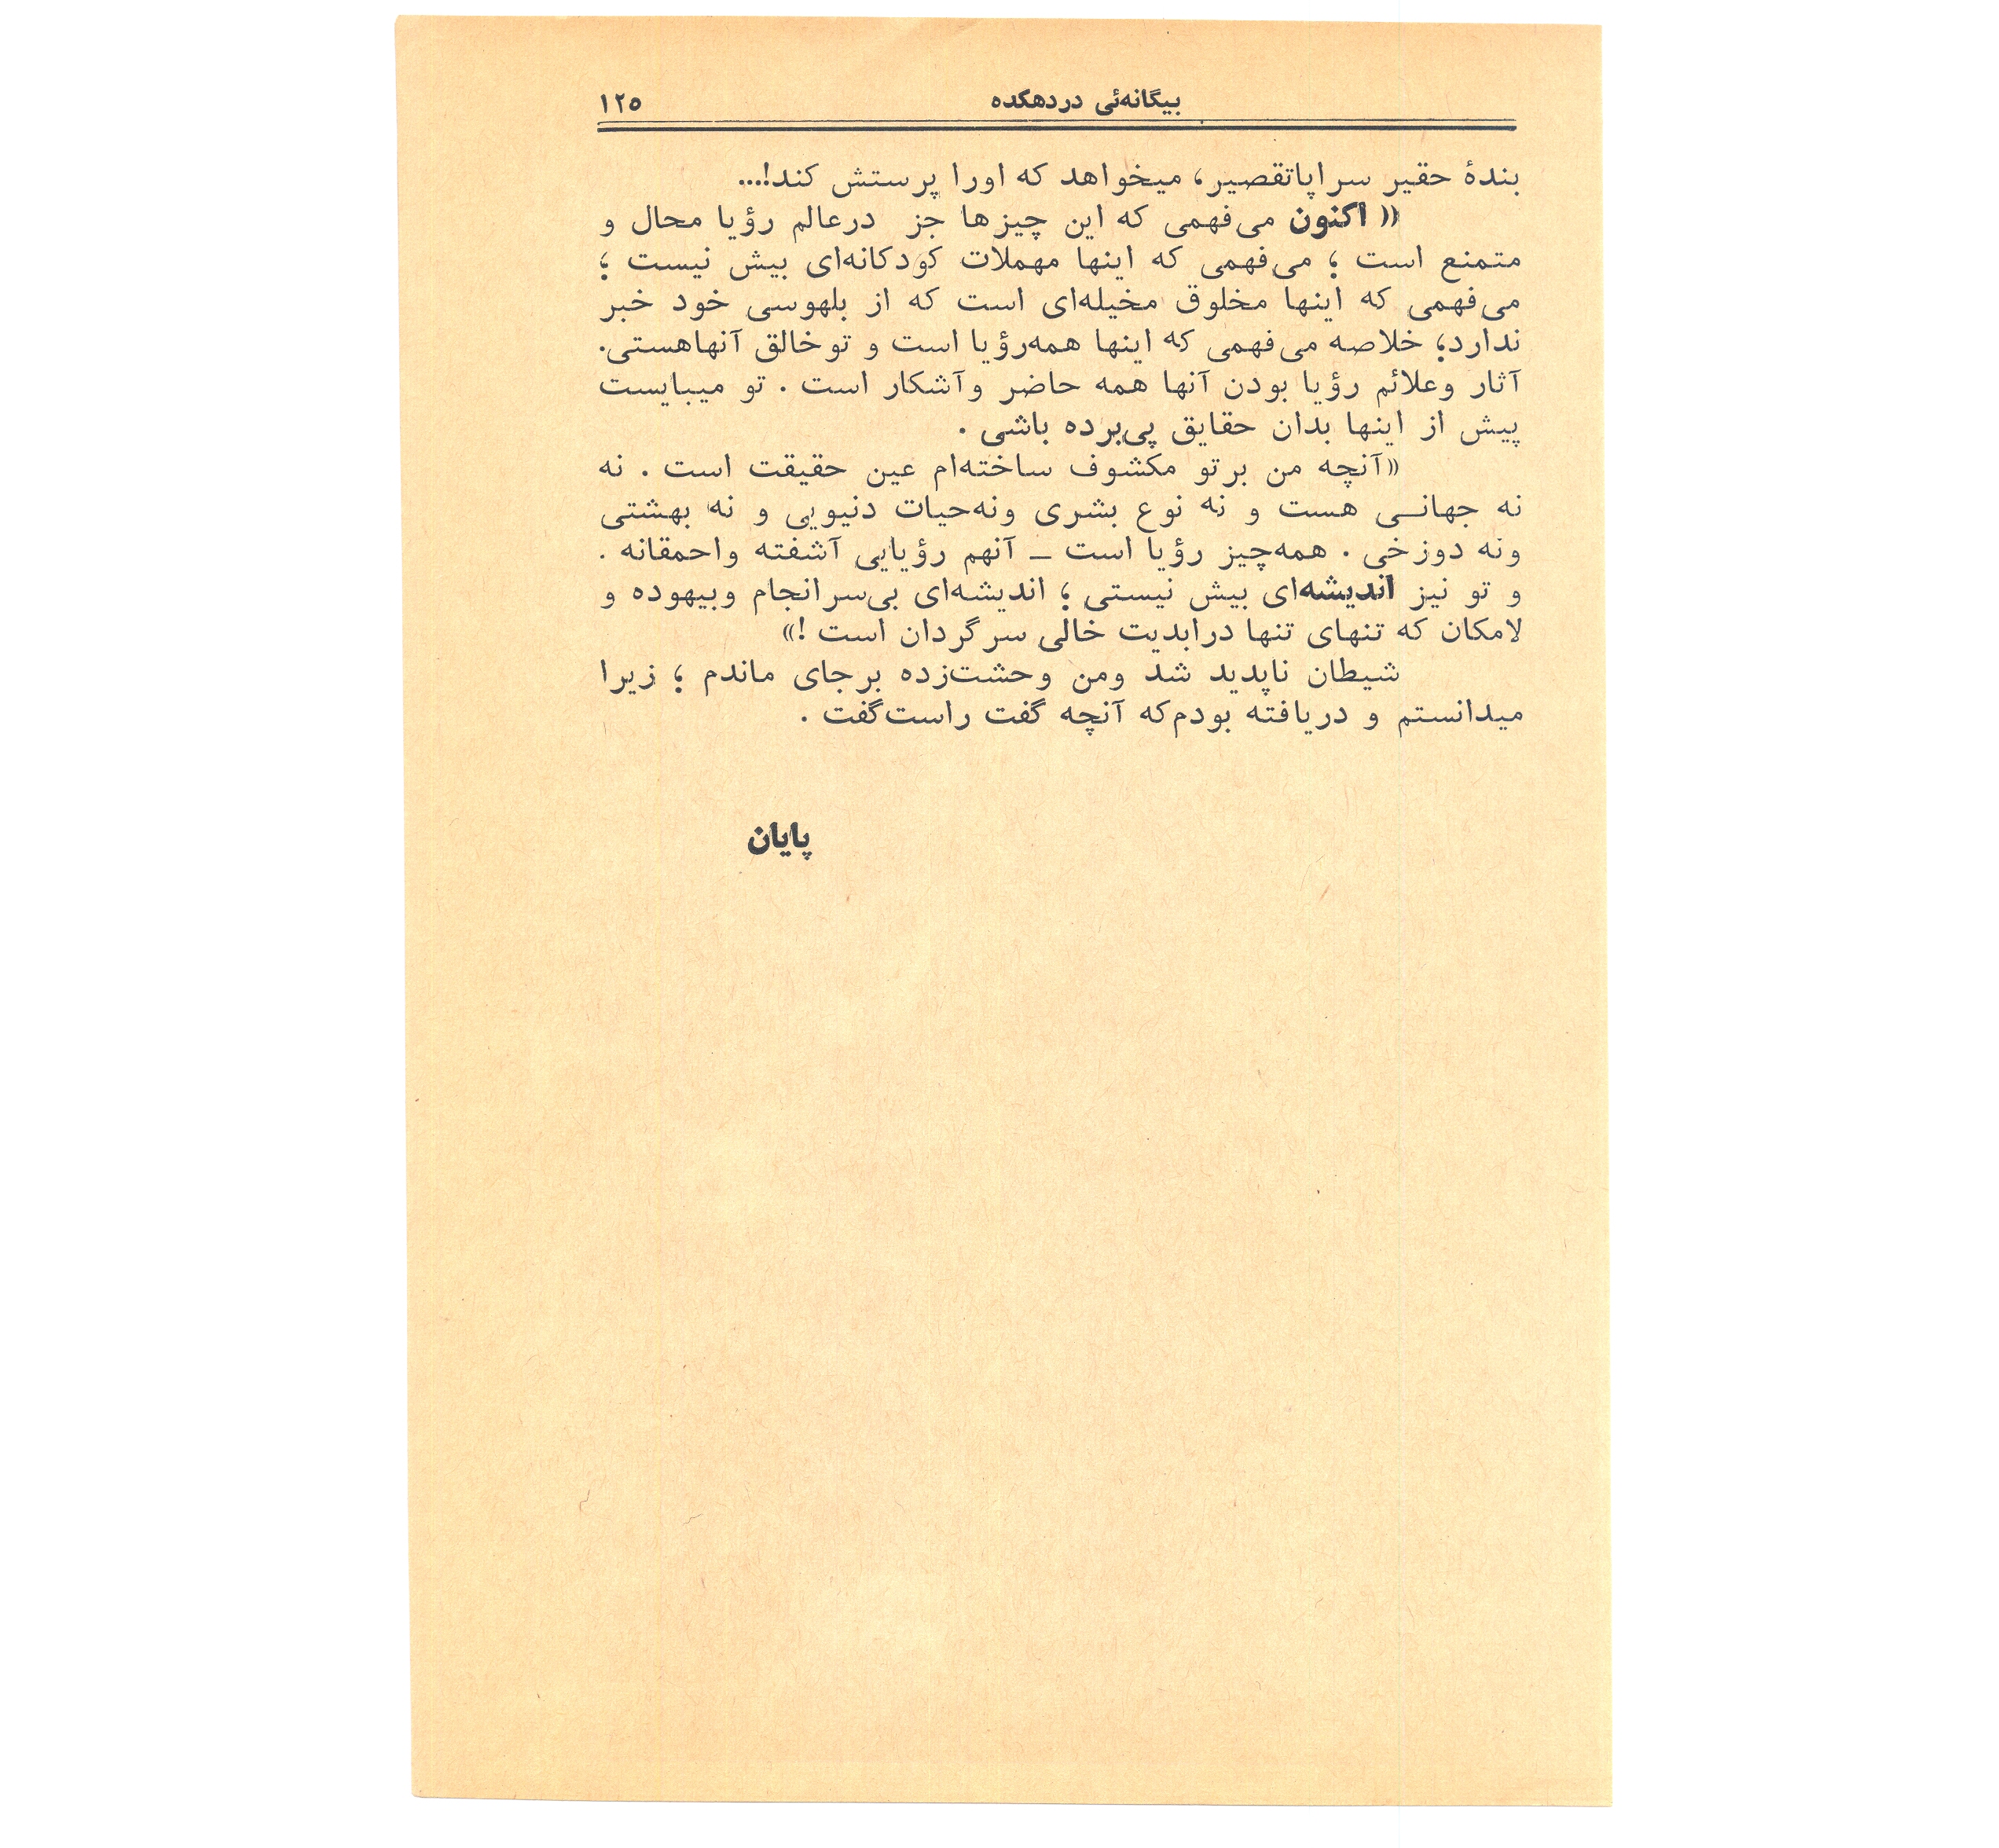 بیگانه‌ئی در دهکده ۱۲۵
بندهٔ حقیر سراپاتقصیر، میخواهد که اورا پرستش کند!...
«اکنون می‌فهمی که این چیزها جز درعالم رؤیا محال و
متمنع است ؛ می‌فهمی که اینها مهملات کودکانه‌ای بیش نیست ؛
می‌فهمی که اینها مخلوق مخیله‌ای است که از بلهوسی خود خبر
ندارد؛ خلاصه می‌فهمی که اینها همه‌رؤیا است و توخالق آنهاهستی.
آثار وعلائم رؤیا بودن آنها همه حاضر وآشکار است . تو میبایست
پیش از اینها بدان حقایق پی‌برده باشی .
«آنچه من برتو مکشوف ساخته‌ام عین حقیقت است . نه
نه جهانـی هست و نه نوع بشری ونه‌حیات دنیویی و نه بهشتی
ونه دوزخی . همه‌چیز رؤیا است ـ آنهم رؤیایی آشفته واحمقانه .
و تو نیز اندیشه‌ای بیش نیستی ؛ اندیشه‌ای بی‌سرانجام وبیهوده و
لامکان که تنهای تنها درابدیت خالی سرگردان است !»
شیطان ناپدید شد ومن وحشت‌زده برجای ماندم ؛ زیرا
میدانستم و دریافته بودم‌که آنچه گفت راست‌گفت .
پایان